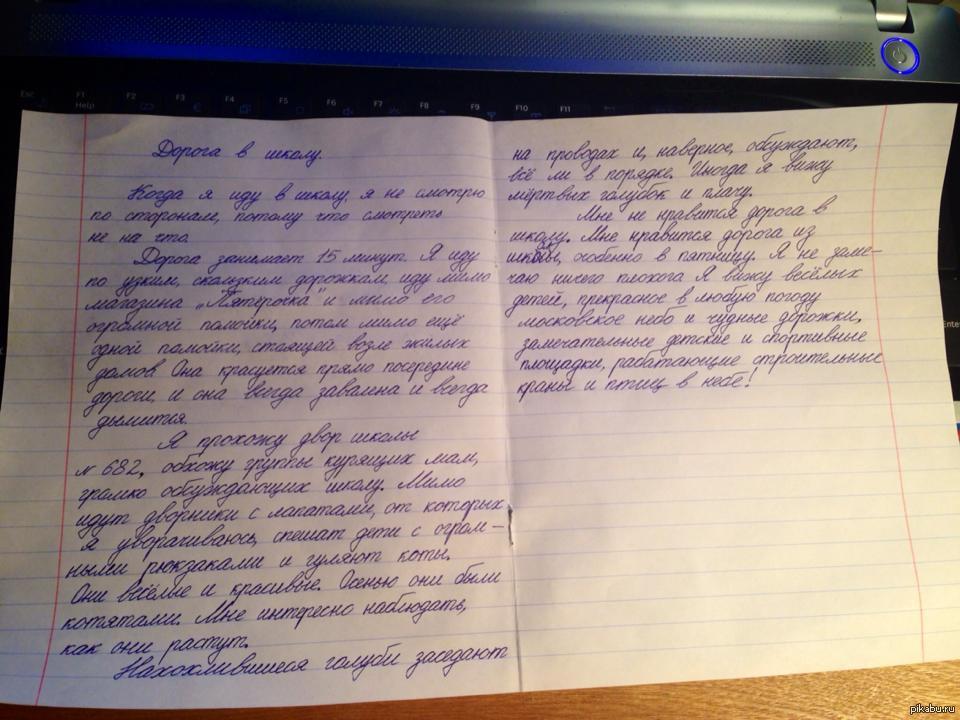 Esc
F1
Help
F2
F3
F4
F5
F6
F7
F8
F9
F10
F11
Дорога в школу.
Когда я иду в школу, я не смотрю
по сторонам, потому что смотреть
не на что.
Дорога занимает 15 минут. Я иду
по узким, скользким дорожкам, иду мимо
магазина „Пятёрочка" и мимо его
огромной помойки, потом мимо ещё
одной помойки, стоящей возле жилых
домов. Она красуется прямо посередине
дороги, и она всегда завалена и всегда
дымится.
Я прохожу двор школы
№ 682, обхожу группы курящих мам,
громко обсуждающих школу. Мимо
идут дворники с лапатами, от которых
я уворачиваюсь, спешат дети с огром–
ными рюкзаками и гуляют коты.
Они весёлые и красивые. Осенью они были
котятами. Мне интересно наблюдать,
как они растут.
Нахохлившиеся голуби заседают
на проводах и, наверное, обсуждают,
всё ли в порядке. Иногда я вижу
мёртвых голубок и плачу.
Мне не нравится дорога в
школу. Мне нравится дорога из
школы, особенно в пятницу. Я не заме–
чаю ничего плохога. Я вижу весёлых
детей, прекрасное в любую погоду
московское небо и чудные дорожки,
замечательные детские и спортивные
площадки, работающие строительные
краны и птиц в небе!
Enter
pikabu.ru